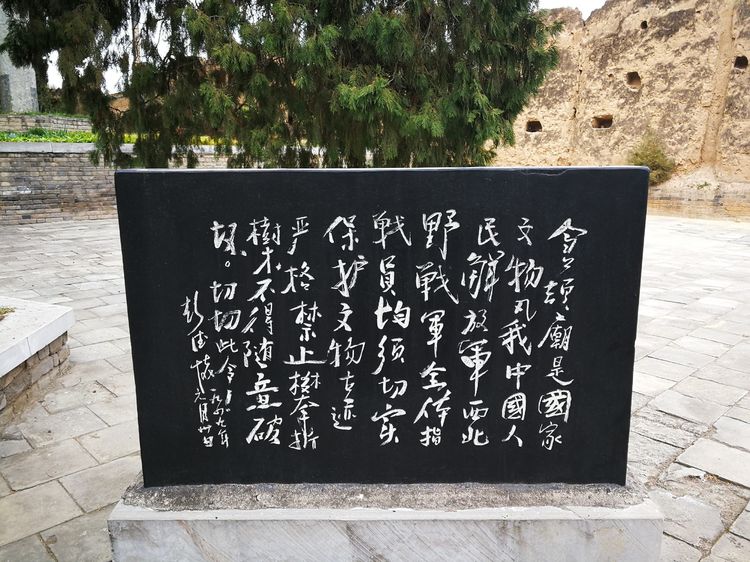 仓颉廟是國家
文物凡我中國人
民解放軍西北
野戰軍全体指
戰員均须切实
保护文物古迹
严格禁止攀折
樹木不得随意破
坏。切切此令！
彭德怀
一九四九年
元月卅日